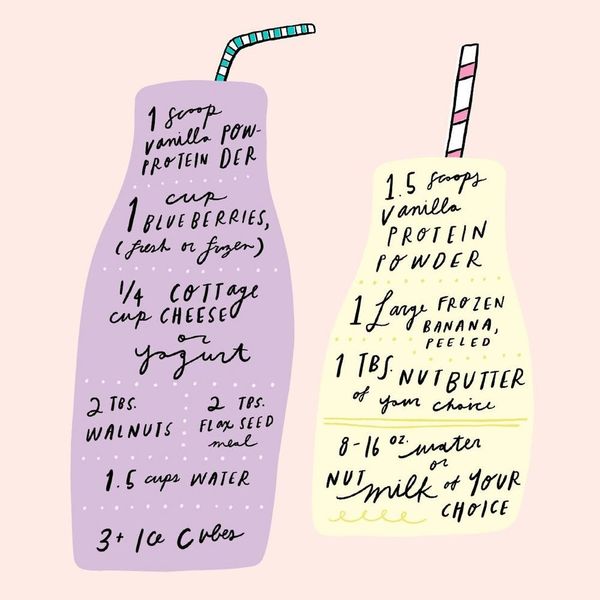 1 scoop
vanilla POW-
PROTEIN DER
1 cup
BLUEBERRIES,
(fresh or frozen)
1/4 COTTage
cup CHEESE
or
yogurt
2 TBS.
WALNUTS
2 TBS.
FLax SEED
meal
1.5 cups WATER
3+ Ice Cubes
1.5 scoops
vanilla
PROTEIN
POWDER
1 Large FROZEN
BANANA,
PEELED
1 TBS. NUT BUTTER
of your choice
8-16 oz. water
or
NUT milk of YOUR
CHOICE